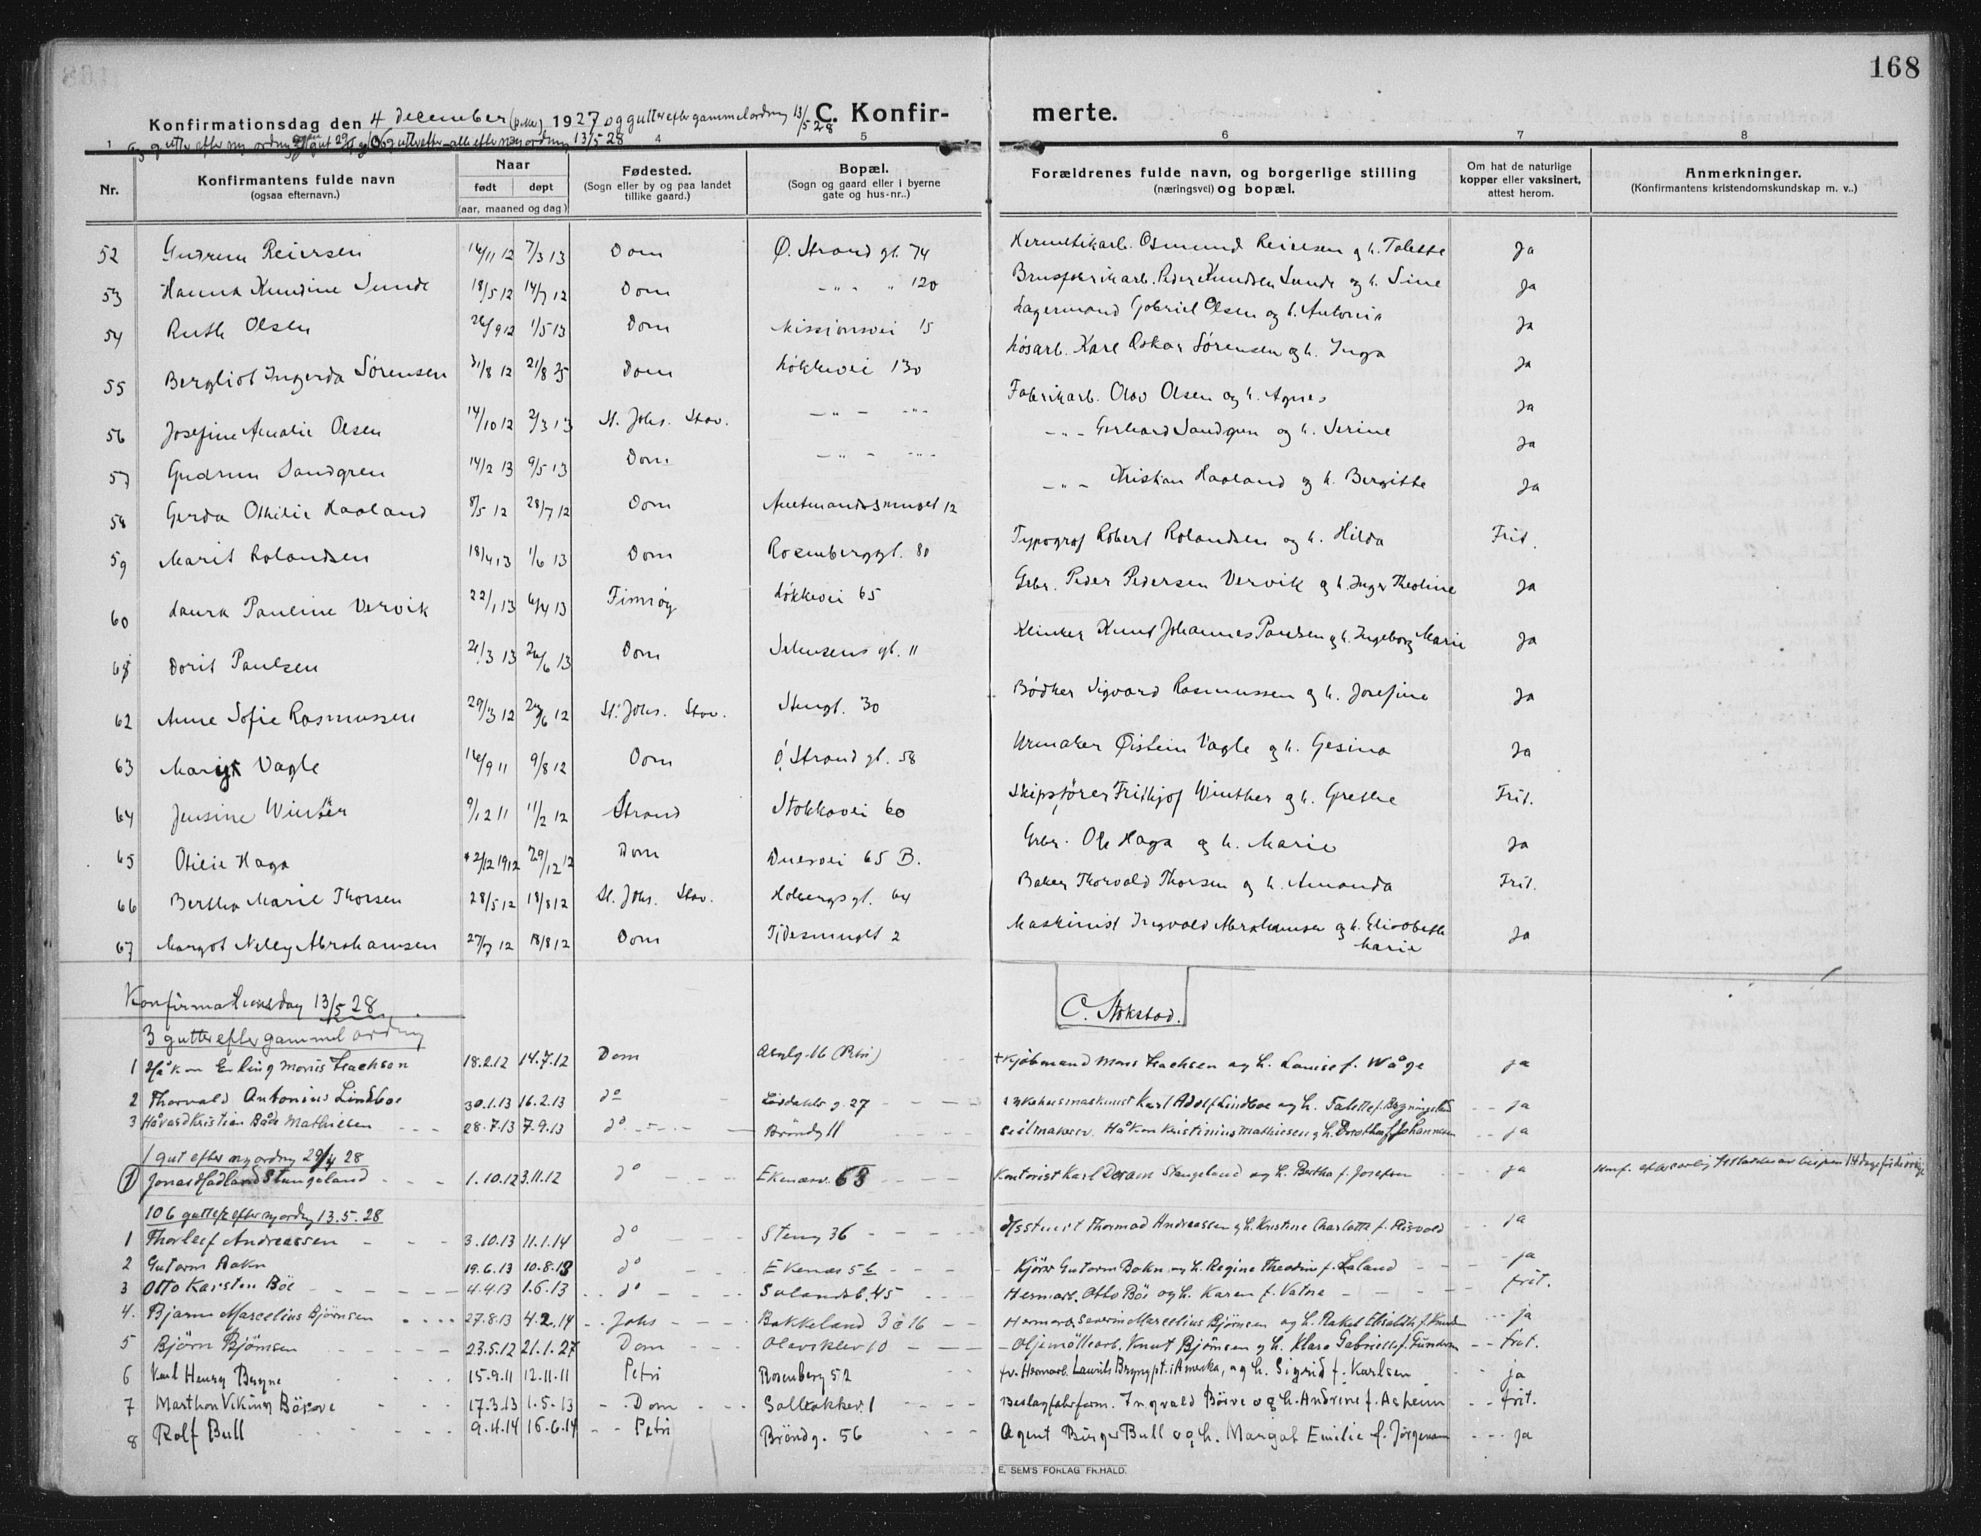 168
Konfirmationsdag den 4 december (Petri) 1927 og gutter efter gammel ordning 13/5 28 C. Konfirmerte.
1 4 5 6 7 8
Nr. Konfirmantens fulde navn (ogsaa efternavn.) Naar født døpt (aar, maaned og dag) Fødested. (Sogn eller by og paa landet tillike gaard.) Bopæl. (Sogn og gaard eller i byerne gate og hus-nr..) Forældrenes fulde navn, og borgerlige stilling (næringsvei) og bopæl. Om hat de naturlige kopper eller vaksinert, attest herom. Anmerkninger. (Konfirmantens kristendomskundskap m. v..)
52 Gudrun Reiersen 16/11 12 7/3 13 Dom Ø. Strand gt. 74 Hermetikarb. Osmund Reiersen og h. Talette Ja
53 Hanna Knudine Sunde 18/5 12 14/7 12 Dom " " 120 Brusfabrikarb. Peder Knudsen Sunde og h. Sine Ja
54 Ruth Olsen 26/9 12 1/5 13 Dom Missionsvei 15 Lagermand Gabriel Olsen og h. Antonia Ja
55 Bergliot Ingerda Sørensen 31/8 12 21/8 25 Dom Løkkevei 130 Løsarb. Karl Oskar Sørensen og h. Inga Ja
56 Josefine Amalie Olsen 14/10 12 2/3 13 St. Johs. Stav. — " — " Fabrikarb. Olav Olsen og h. Agnes Ja
57 Gudrun Sandgren 14/2 13 9/5 13 Dom — " — " — " — Gerhard Sandgren og h. Serine Ja
58 Gerda Othilie Haaland 8/5 12 28/7 12 Dom Amtmandssmuget 12 — " — Kristian Haaland og h. Bergitte Ja
59 Marit Rolandsen 18/4 13 1/6 13 Dom Rosenberggt. 80 Typograf Robert Rolandsen og h. Hilda Frit.
60 Laura Pauline Vervik 22/1 13 6/4 13 Finnøy Løkkevei 65 Grbr. Peder Pedersen Vervik og h. Inger Theoline Ja
61 Dorit Paulsen 21/3 13 26/6 13 Dom Jelmsens gt. 11 Klinker Knut Johannes Paulsen og h. Ingeborg Marie Ja
62 Anne Sofie Rasmussen 29/3 12 24/6 12 St. Johs. Stav. Stengt. 30 Bødker Sigvard Rasmussen og h. Josefine Ja
63 Margit Vagle 16/9 11 9/8 12 Dom Ø. Strand gt. 58 Urmaker Øistein Vagle og h. Gesina Ja
64 Jensine Winther 9/12 11 11/2 12 Strand Stokkavei 60 Skipsfører Fridtjof Winther og h. Grethe Frit.
65 Otilie Haga 2/12 1912 29/12 12 Dom Duesvei 65 B. Grbr. Ole Haga og h. Marie Ja
66 Bertha Marie Thorsen 28/5 12 18/8 12 St. Johs. Stav. Holbergsgt. 64 Baker Thorvald Thorsen og h. Amanda Frit.
67 Margot Nelly Abrahamsen 27/7 12 18/8 12 Dom Tidesmuget 2 Maskinist Ingvald Abrahamsen og h. Elisabeth Marie Ja
Konfirmationsdag 13/5 28
C. Stokstad.
3 gutter efter gammel ordning
1 Håkon Erling Moris Isachsen 18.2.12 14.7.12 Dom 16 (Petri) Kjøbmand Mons Isachsen og h. Louise f. Wåge ja
2 Thorvald Antonius Lindboe 30.1.13 16.2.13 do g. 27 maskinist Karl Adolf Lindboe og h. Talette f. ja
3 Håvard Kristian Både Mathiesen 28.7.13 7.9.13 do Brøndg 11 Seilmakerv. Håkon Kristinius Mathiesen og h. Dorothea f. Johannesen ja
1 gut efter ny ordng 29/4 28
1 Jonas Hadland Stangeland 1.10.12 3.11.12 do Ekenæsv. 63 Kontorist Karl Stangeland og h. Bertha f. Josefsen ja Konf. efter av bispen 14 dage før de øvrige
106 gutter efter ny ordng 13.5.28
1 Thorleif Andreassen 3.10.13 11.1.14 do Steng 36 Thormod Andreassen og h. Kristine Charlotte f. Risvold ja
2 Gutorm Bakn 19.6.13 10.8.13 do Ekenæs 56 Kjører Gutorm Bakn og h. Regine Theodine f. Laland ja
3 Otto Karsten Bøe 4.4.13 1.6.13 do Sulandsb. 45 Hermarb. Otto Bøe og h. Karen f. Vatne frit.
4. Bjarne Marcelius Bjørnsen 27.8.13 4.2.14 Johs Bakkeland 3 & 16 Hermarb. Severin Marcelius Bjørnsen og h. Rakel Elisabeth f. Knudsen ja
5 Bjørn Bjørnsen 23.5.12 21.1.27 Dom Olavsklev 10 Oljemøllearb. Knut Bjørnsen og h. Klara Gabrielle f. Gundersen frit.
6 Karl Henry Bryne 15.9.11 12.11.11 Petri Rosenberg 52 fv. Hermarb. Laurits Bryne pt. i Amerika, og h. Sigrid f. Karlsen ja
7 Marthon Viking Børve 17.3.13 1.5.13 Dom Solbakkev. 1 Beslagfabrform. Ingvald Børve og h. Andrine f. Asheim frit.
8 Rolf Bull 9.4.14 16.6.14 Petri Brøndg. 56 Agent Birger Bull og h. Margot Emilie f. Jørgensen ja
E. SEM'S FORLAG FR.HALD.